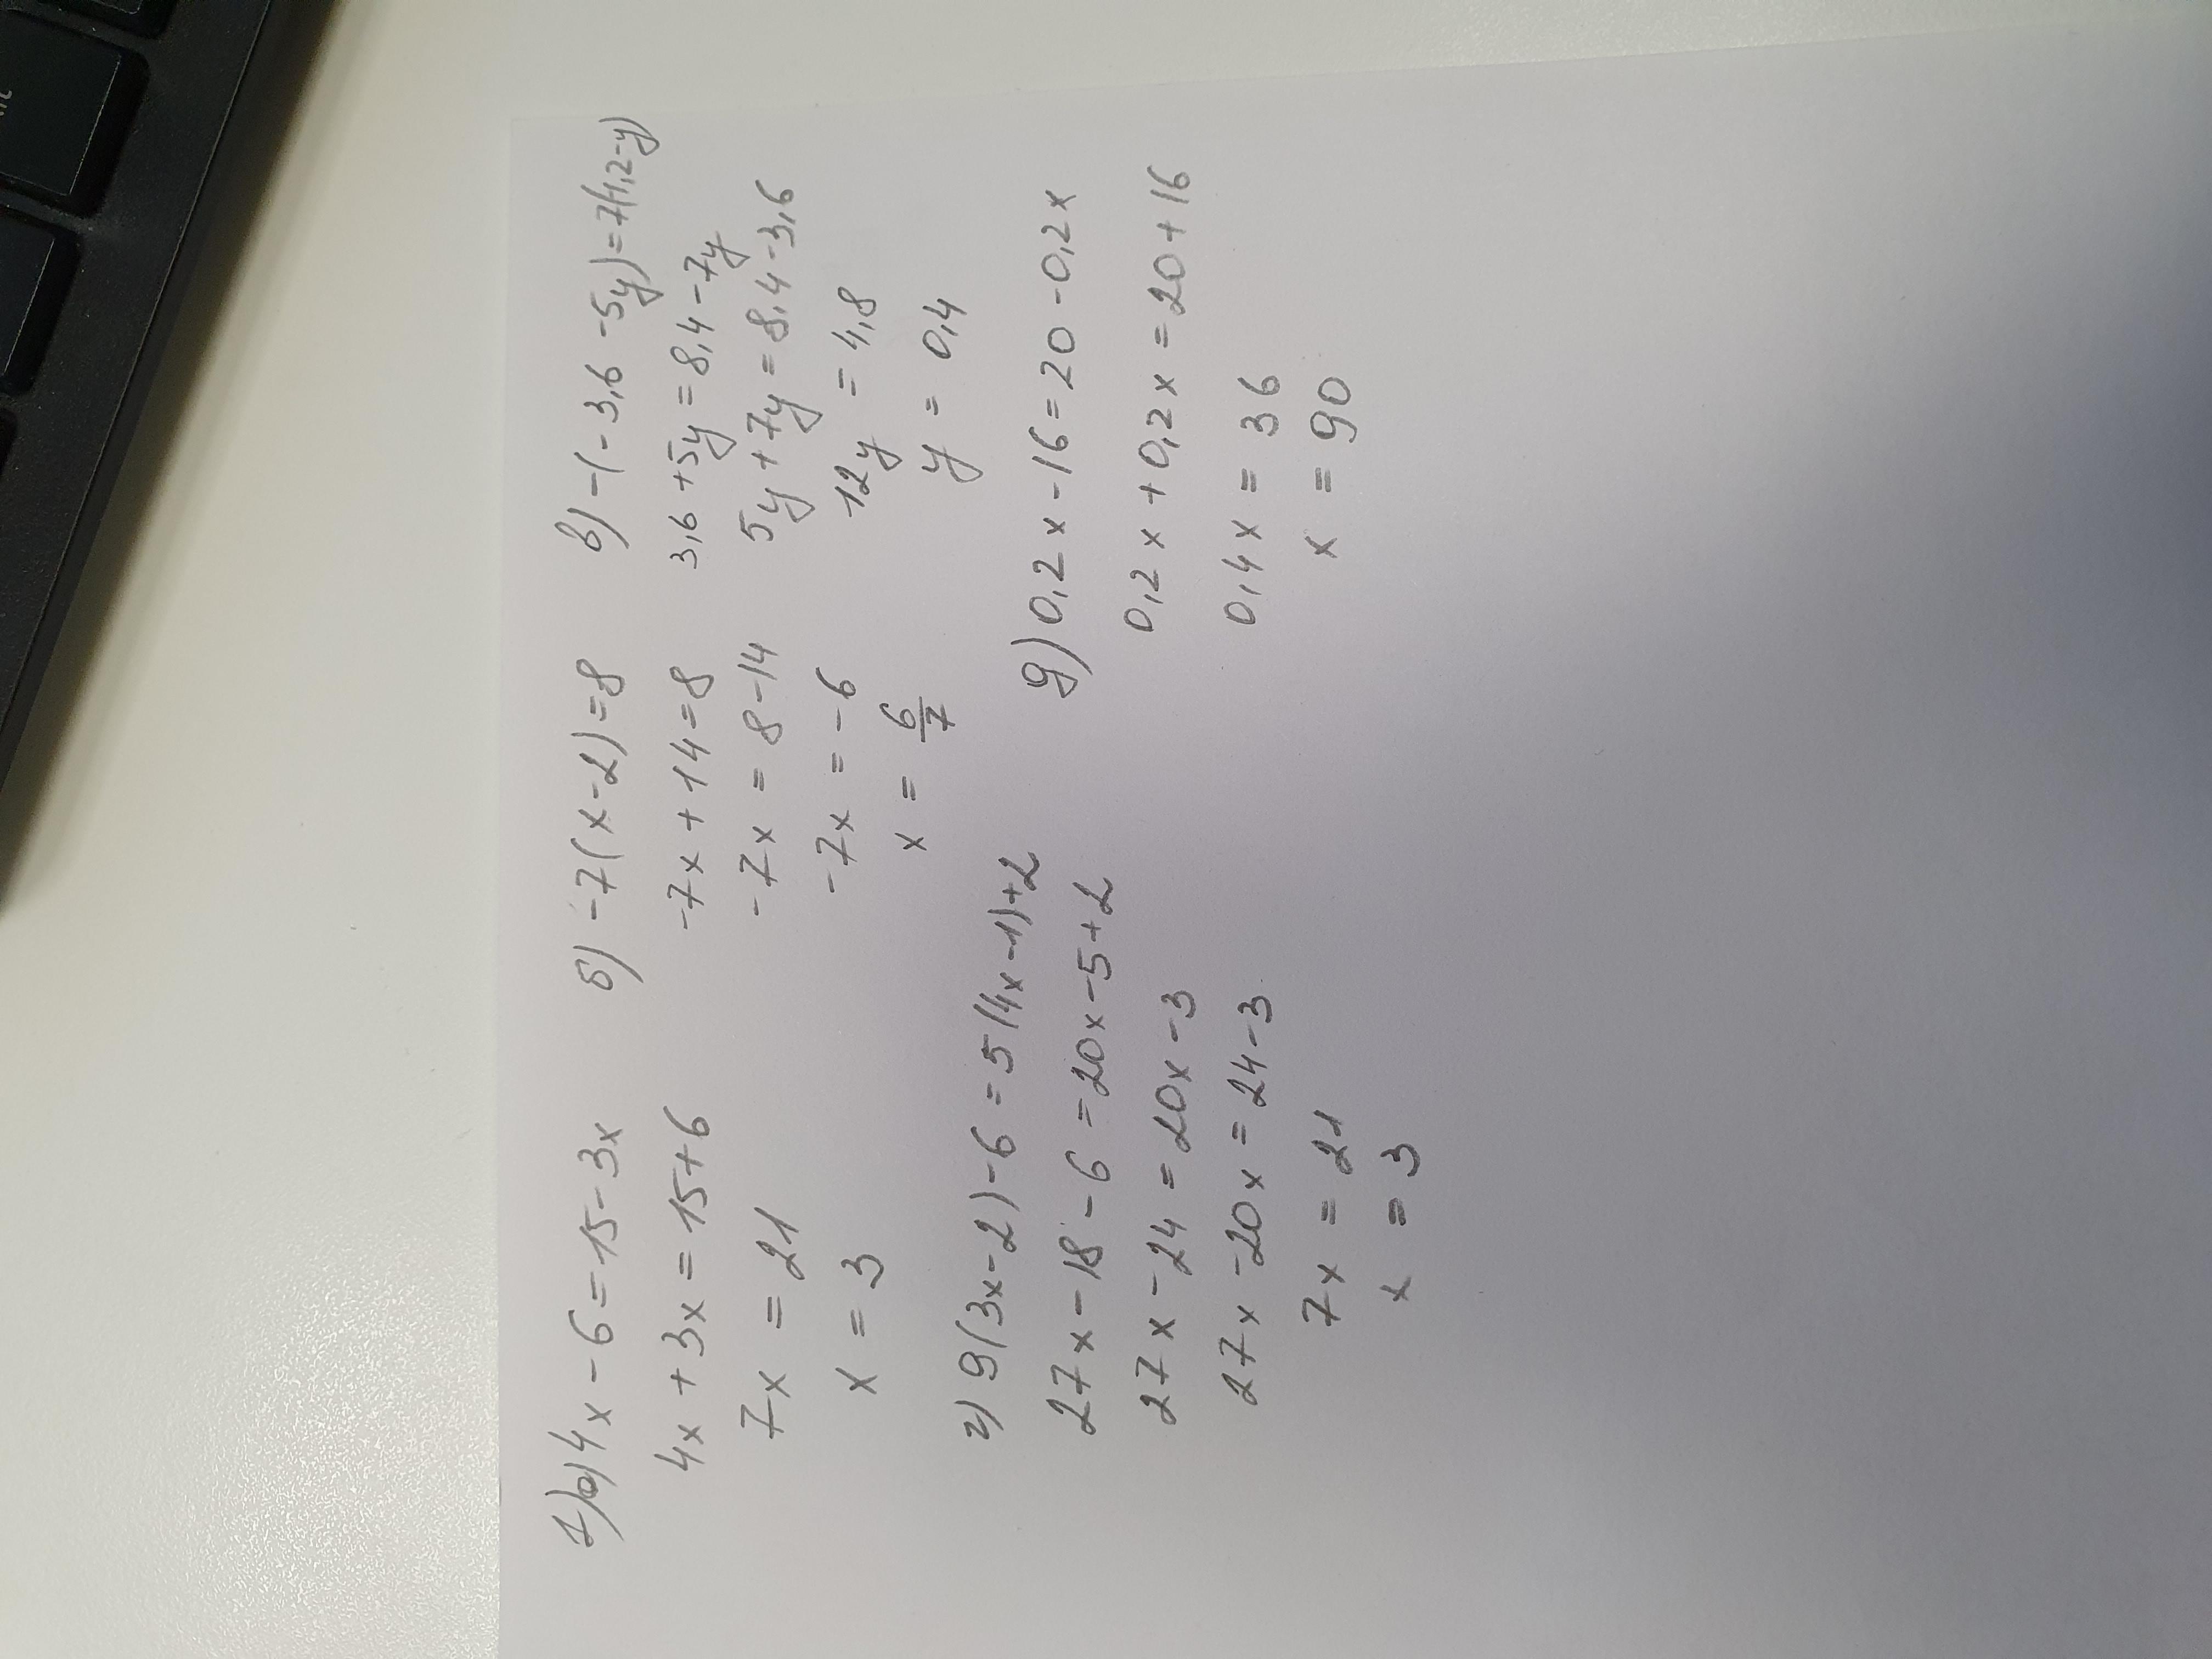 1) а) 4x - 6 = 15 - 3x
4x + 3x = 15 + 6
7x = 21
x = 3
б) -7(x-2) = 8
-7x + 14 = 8
-7x = 8 - 14
-7x = -6
x = 6/7
в) -(-3,6 - 5y) = 7(1,2-y)
3,6 + 5y = 8,4 - 7y
5y + 7y = 8,4 - 3,6
12y = 4,8
y = 0,4
г) 9(3x-2) - 6 = 5(4x-1)+2
27x - 18 - 6 = 20x - 5 + 2
27x - 24 = 20x - 3
27x - 20x = 24 - 3
7x = 21
x = 3
д) 0,2x - 16 = 20 - 0,2x
0,2x + 0,2x = 20 + 16
0,4x = 36
x = 90